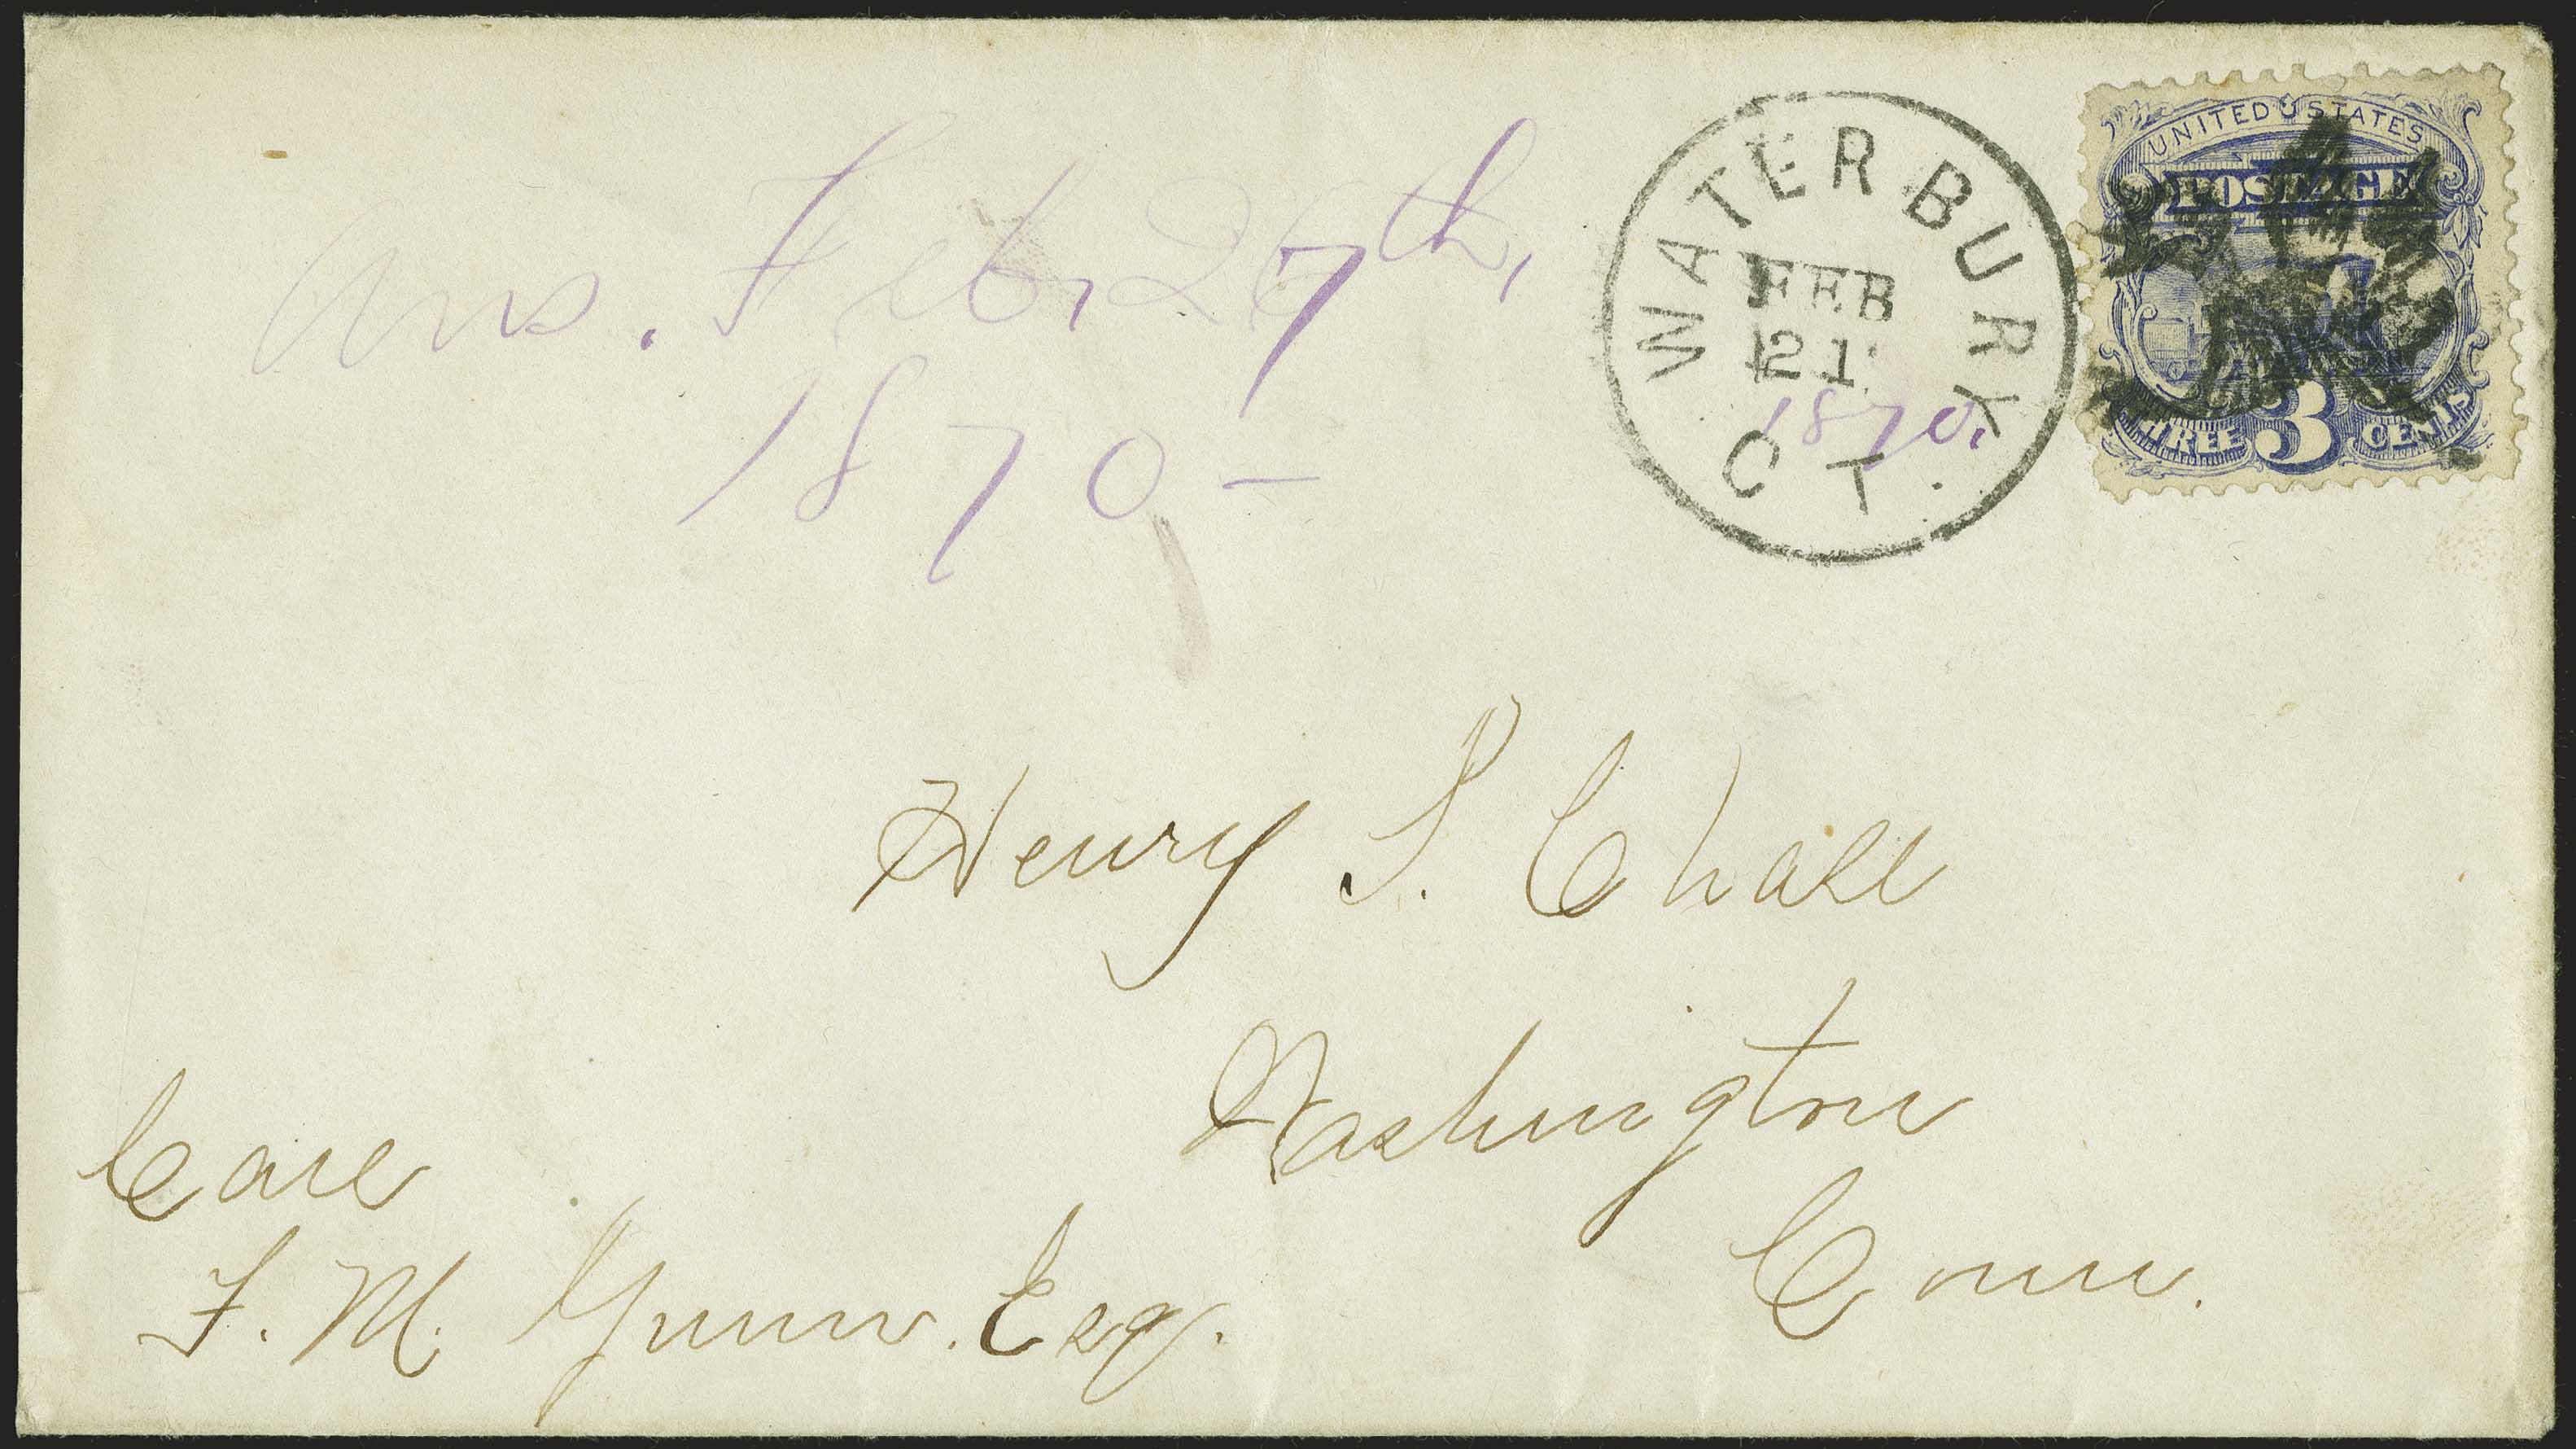 Ans. Feb. 27th,
1870 -
WATERBURY
FEB
21
1870.
CT.
UNITED STATES
POSTAGE
THREE 3 CENTS
Henry S. Chase
Washington
Conn.
Care
F. M. Gunn. Esq.